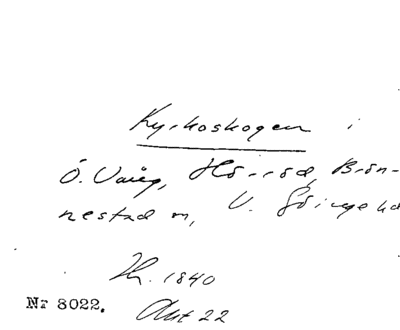 Kyrkoskogen i
Ö. Vång, Hörröd, Brön-
nestad m, V. Göinge hd
Hr. 1840
Nr 8022. Akt 22